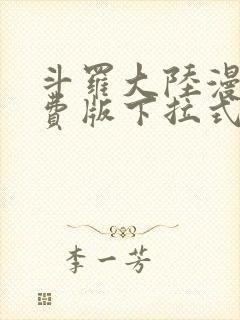 斗罗大陸漫
費版下拉式
李一芳